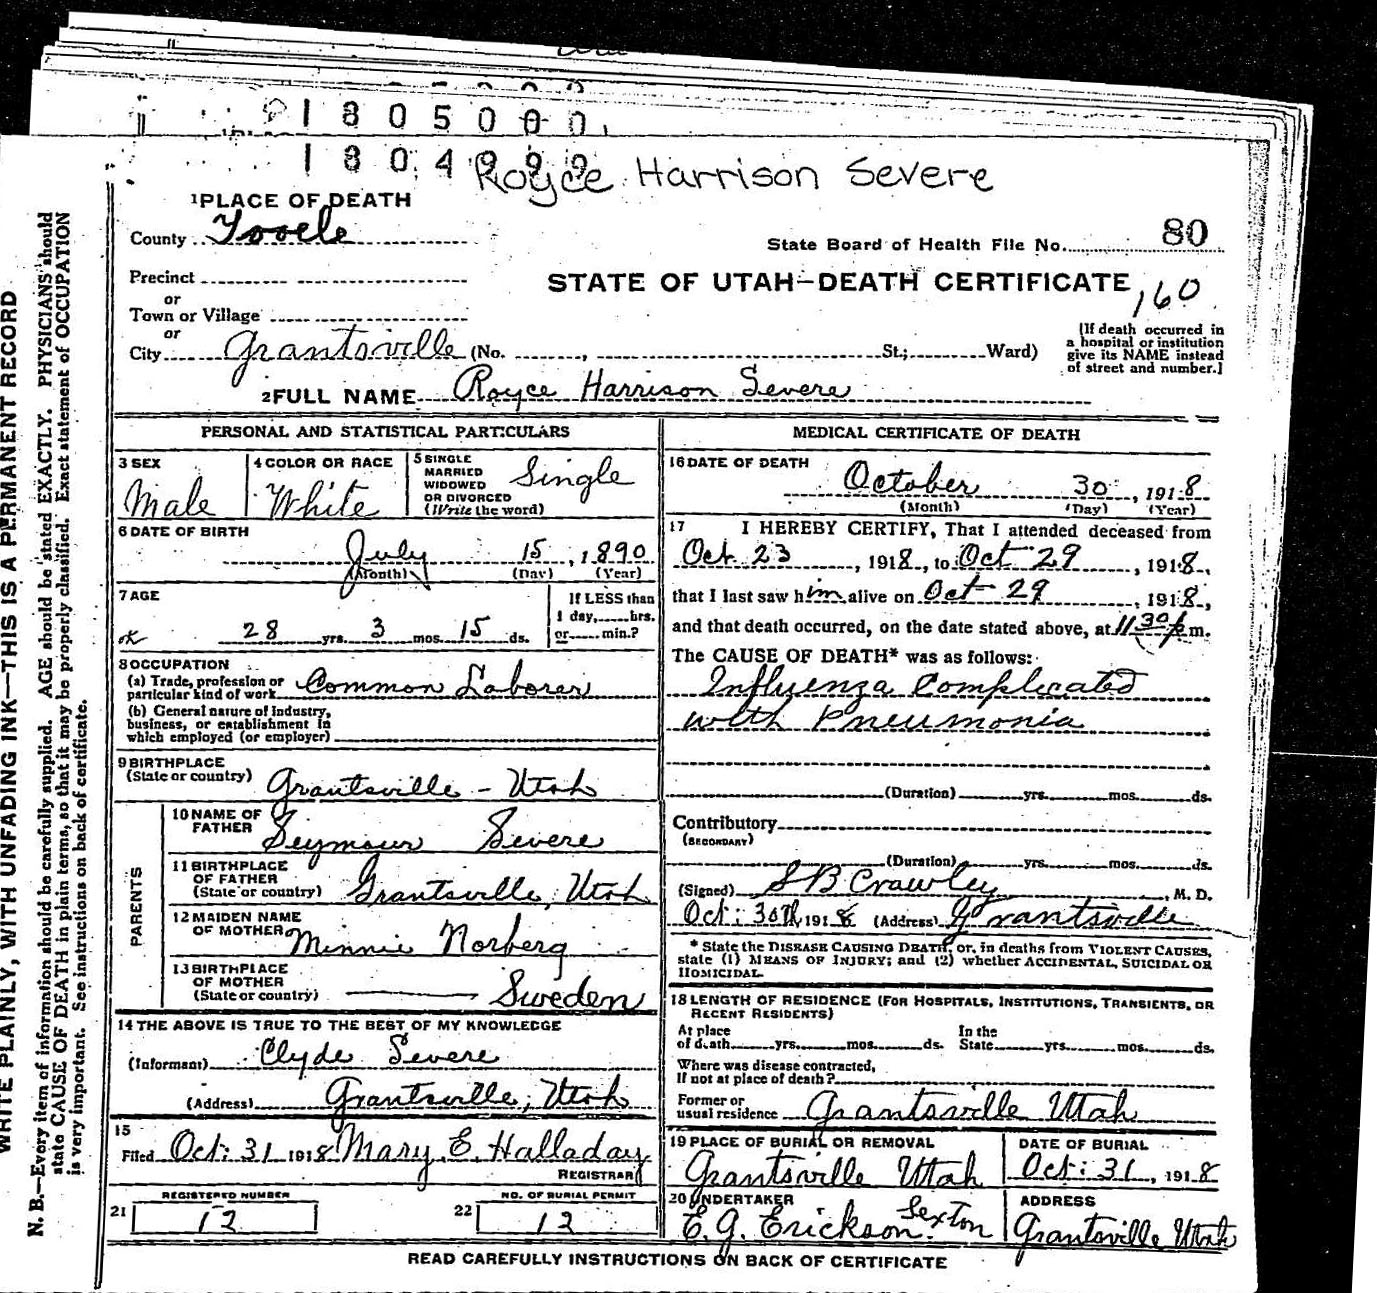 1805000
1804999
Royce Harrison Severe
1 PLACE OF DEATH
County Tooele
State Board of Health File No. 80
Precinct
STATE OF UTAH—DEATH CERTIFICATE
160
or
Town or Village
or
City Grantsville (No. , St.; Ward)
[If death occurred in
a hospital or institution
give its NAME instead
of street and number.]
2 FULL NAME Royce Harrison Severe
PERSONAL AND STATISTICAL PARTICULARS
3 SEX
Male
4 COLOR OR RACE
White
5 SINGLE
MARRIED
WIDOWED
OR DIVORCED
(Write the word)
Single
6 DATE OF BIRTH
July 15, 1890
(Month) (Day) (Year)
7 AGE
ok 28 yrs. 3 mos. 15 ds.
If LESS than
1 day, hrs.
or min.?
8 OCCUPATION
(a) Trade, profession or
particular kind of work Common Laborer
(b) General nature of industry,
business, or establishment in
which employed (or employer)
9 BIRTHPLACE
(State or country) Grantsville - Utah
PARENTS
10 NAME OF
FATHER Seymour Severe
11 BIRTHPLACE
OF FATHER
(State or country) Grantsville, Utah
12 MAIDEN NAME
OF MOTHER Minnie Norberg
13 BIRTHPLACE
OF MOTHER
(State or country) Sweden
14 THE ABOVE IS TRUE TO THE BEST OF MY KNOWLEDGE
(Informant) Clyde Severe
(Address) Grantsville, Utah
15
Filed Oct: 31 1918 Mary E. Halladay
REGISTRAR
REGISTERED NUMBER
21 12
NO. OF BURIAL PERMIT
22 12
MEDICAL CERTIFICATE OF DEATH
16 DATE OF DEATH
October 30, 1918
(Month) (Day) (Year)
17 I HEREBY CERTIFY, That I attended deceased from
Oct. 23, 1918, to Oct 29, 1918,
that I last saw him alive on Oct 29, 1918,
and that death occurred, on the date stated above, at 11 30 p m.
The CAUSE OF DEATH* was as follows:
Influenza Complicated
with Pneumonia
(Duration) yrs. mos. ds.
Contributory
(SECONDARY)
(Duration) yrs. mos. ds.
(Signed) S B Crawley, M. D.
Oct: 30th 1918 (Address) Grantsville
* State the DISEASE CAUSING DEATH, or, in deaths from VIOLENT CAUSES,
state (1) MEANS OF INJURY; and (2) whether ACCIDENTAL, SUICIDAL OR
HOMICIDAL.
18 LENGTH OF RESIDENCE (FOR HOSPITALS, INSTITUTIONS, TRANSIENTS, OR
RECENT RESIDENTS)
At place In the
of death yrs. mos. ds. State yrs. mos. ds.
Where was disease contracted,
If not at place of death?
Former or
usual residence Grantsville Utah
19 PLACE OF BURIAL OR REMOVAL
Grantsville Utah
DATE OF BURIAL
Oct: 31, 1918
20 UNDERTAKER
E. G. Erickson. Sexton
ADDRESS
Grantsville Utah
READ CAREFULLY INSTRUCTIONS ON BACK OF CERTIFICATE
WRITE PLAINLY, WITH UNFADING INK—THIS IS A PERMANENT RECORD
N. B.—Every item of information should be carefully supplied. AGE should be stated EXACTLY. PHYSICIANS should
state CAUSE OF DEATH in plain terms, so that it may be properly classified. Exact statement of OCCUPATION
is very important. See instructions on back of certificate.